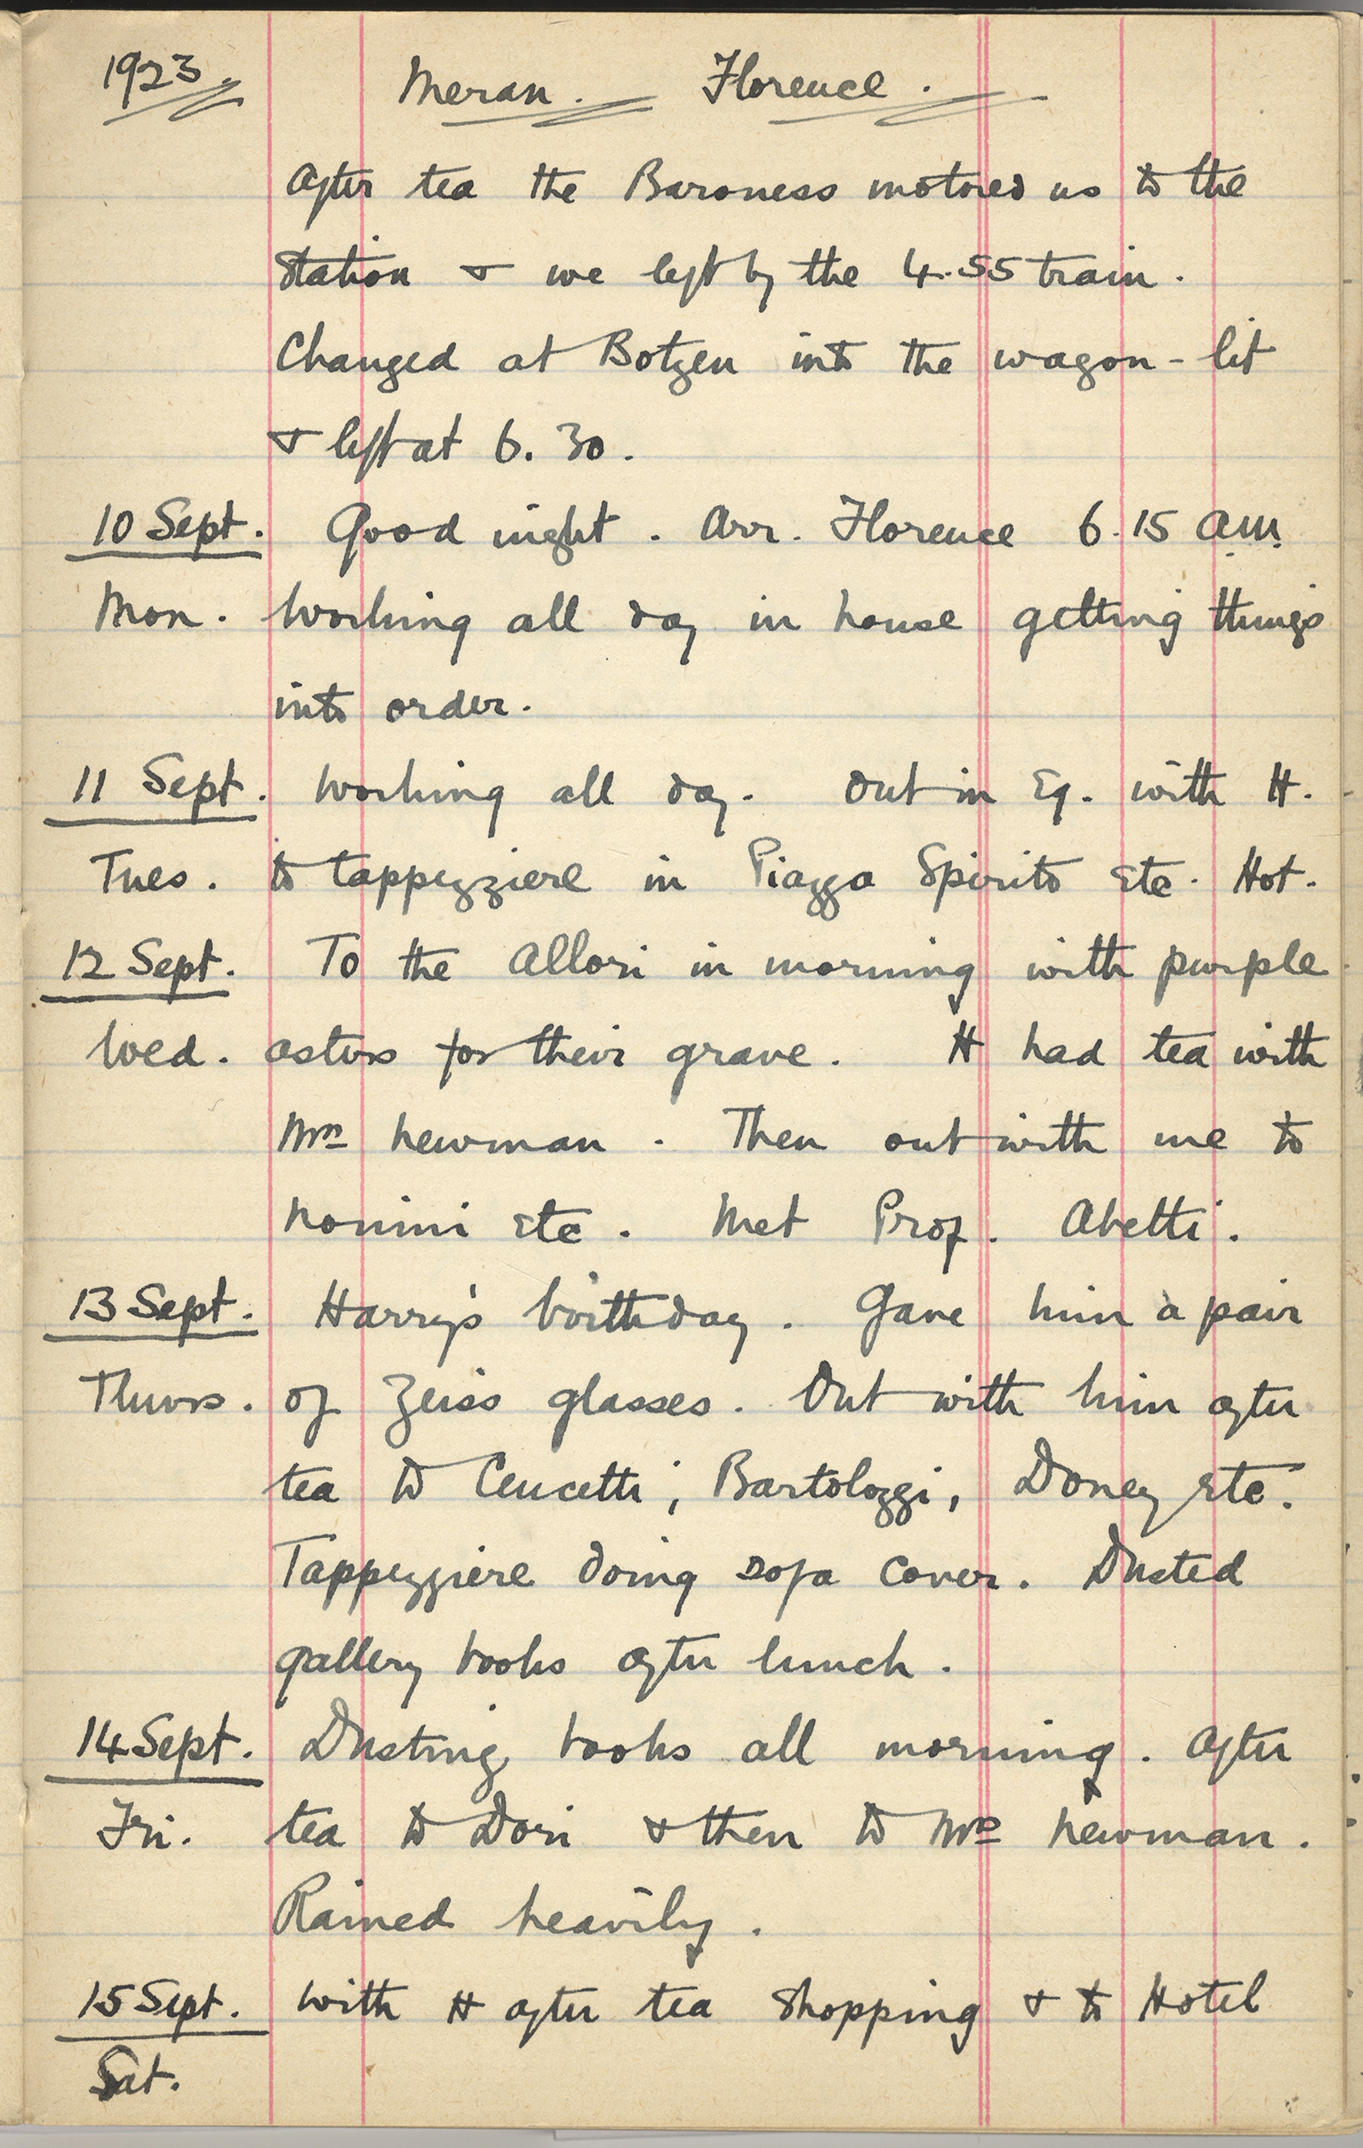 1923. Meran. Florence.
After tea the Baroness motored us to the
station & we left by the 4.55 train.
Changed at Botzen into the wagon-lit
& left at 6.30.
10 Sept. Good night. Arr. Florence 6.15 am.
Mon. Working all day in house getting things
into order.
11 Sept. Working all day. Out in Eq. with H.
Tues. to tappezziere in Piazza Spirito etc. Hot.
12 Sept. To the Allori in morning with purple
Wed. asters for their grave. H had tea with
Mrs Newman. Then out with me to
etc. Met Prof. Abetti.
13 Sept. Harry's birthday. Gave him a pair
Thurs. of Zeiss glasses. Out with him after
tea to Bartolozzi, Doney etc.
Tappezziere doing sofa cover. Dusted
gallery books after lunch.
14 Sept. Dusting books all morning. After
Fri. tea to Dori & then to Mrs Newman.
Rained heavily.
15 Sept. With H after tea shopping & to Hotel
Sat.